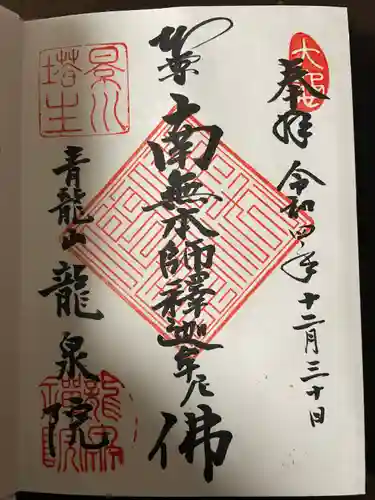 奉拝
令和四年十二月三十日
南無本師釋迦牟尼佛
青龍山龍泉院
景川
塔主